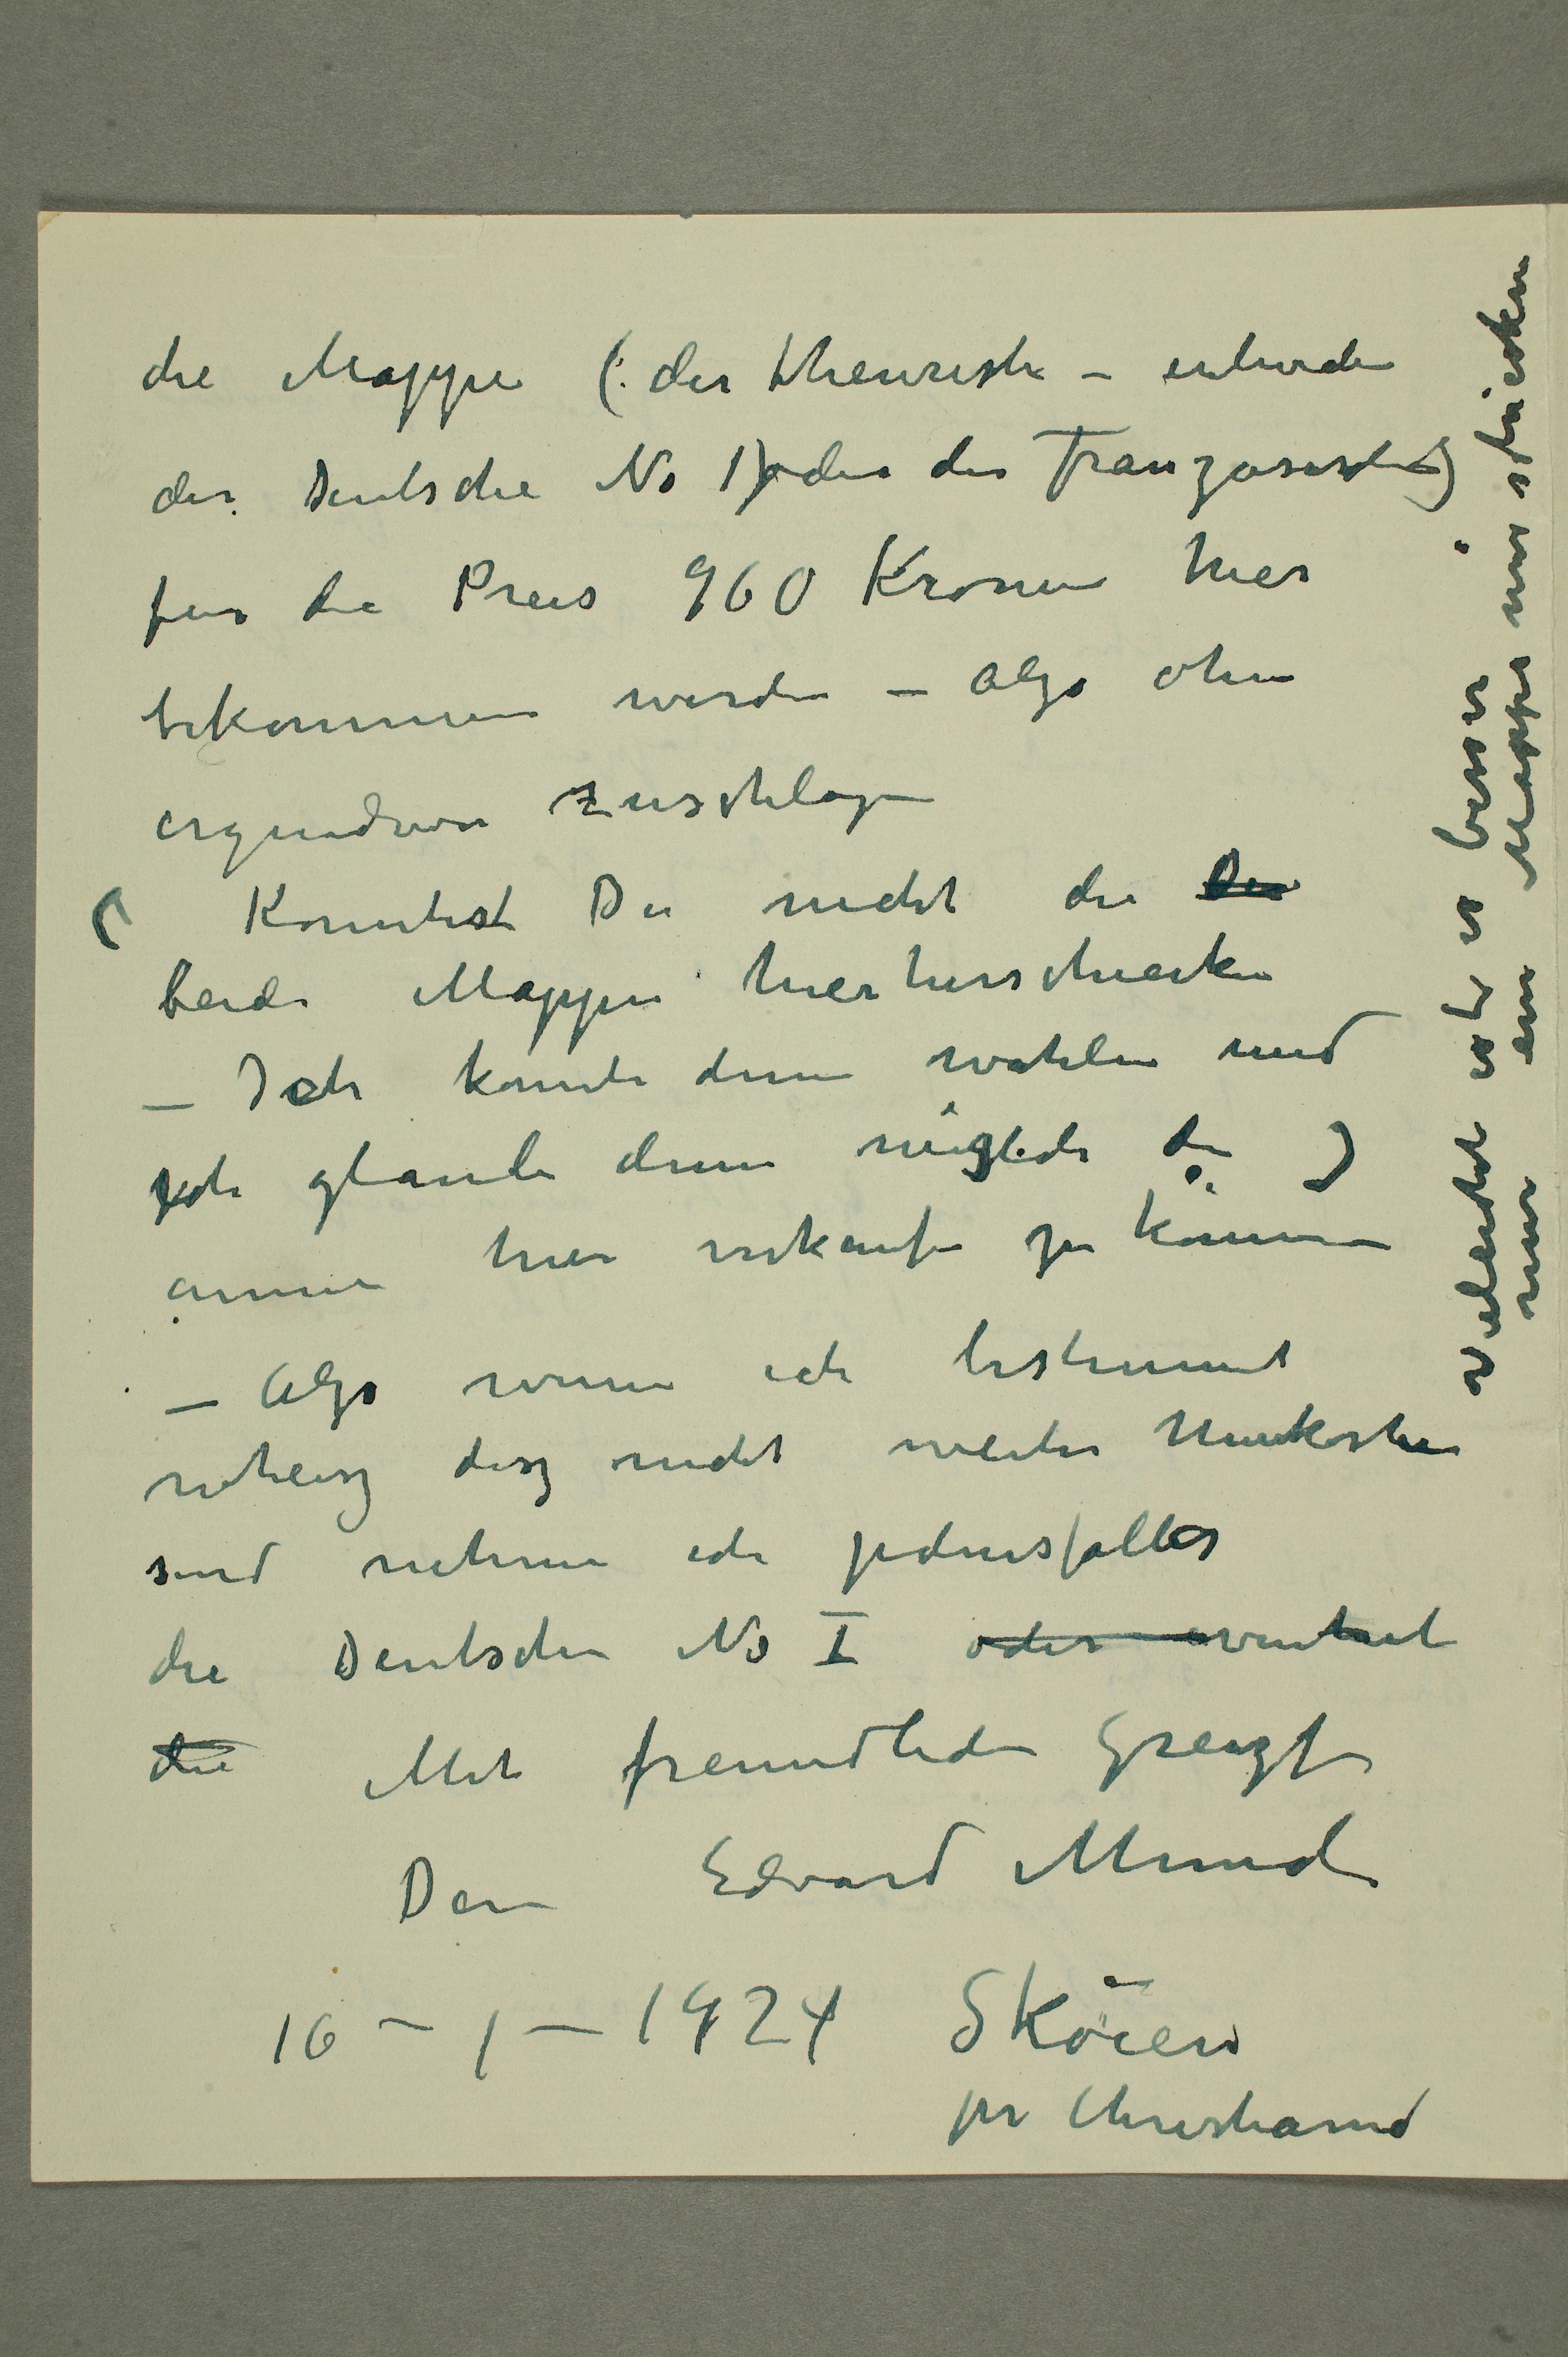 die Mappe (: der theureste – entweder
der Deutsche No 1) oder der Französische)
für die Preis 960 Kronen hier
bekommen werden – also ohne
irgendwie Zuschlage
( Konntest Du nicht die Die
beide Mappen hierherschicken
– Ich konnte denn wahlen und
ich glaube denn möglich die )
annen hier verkaufen zu können
– Also wenn ich bestimmt
weheisz dasz nicht weiter Unnkosten
sind nehme ich jedensfalles
die Deutschen No I oder eventuel
die Mit freundlichen Greuzße
Dein Edvard Munch
16 – 1 – 1924 Sköien
pr Christiania
vieleicht ist es besser
nur ein Mappe mir schicken